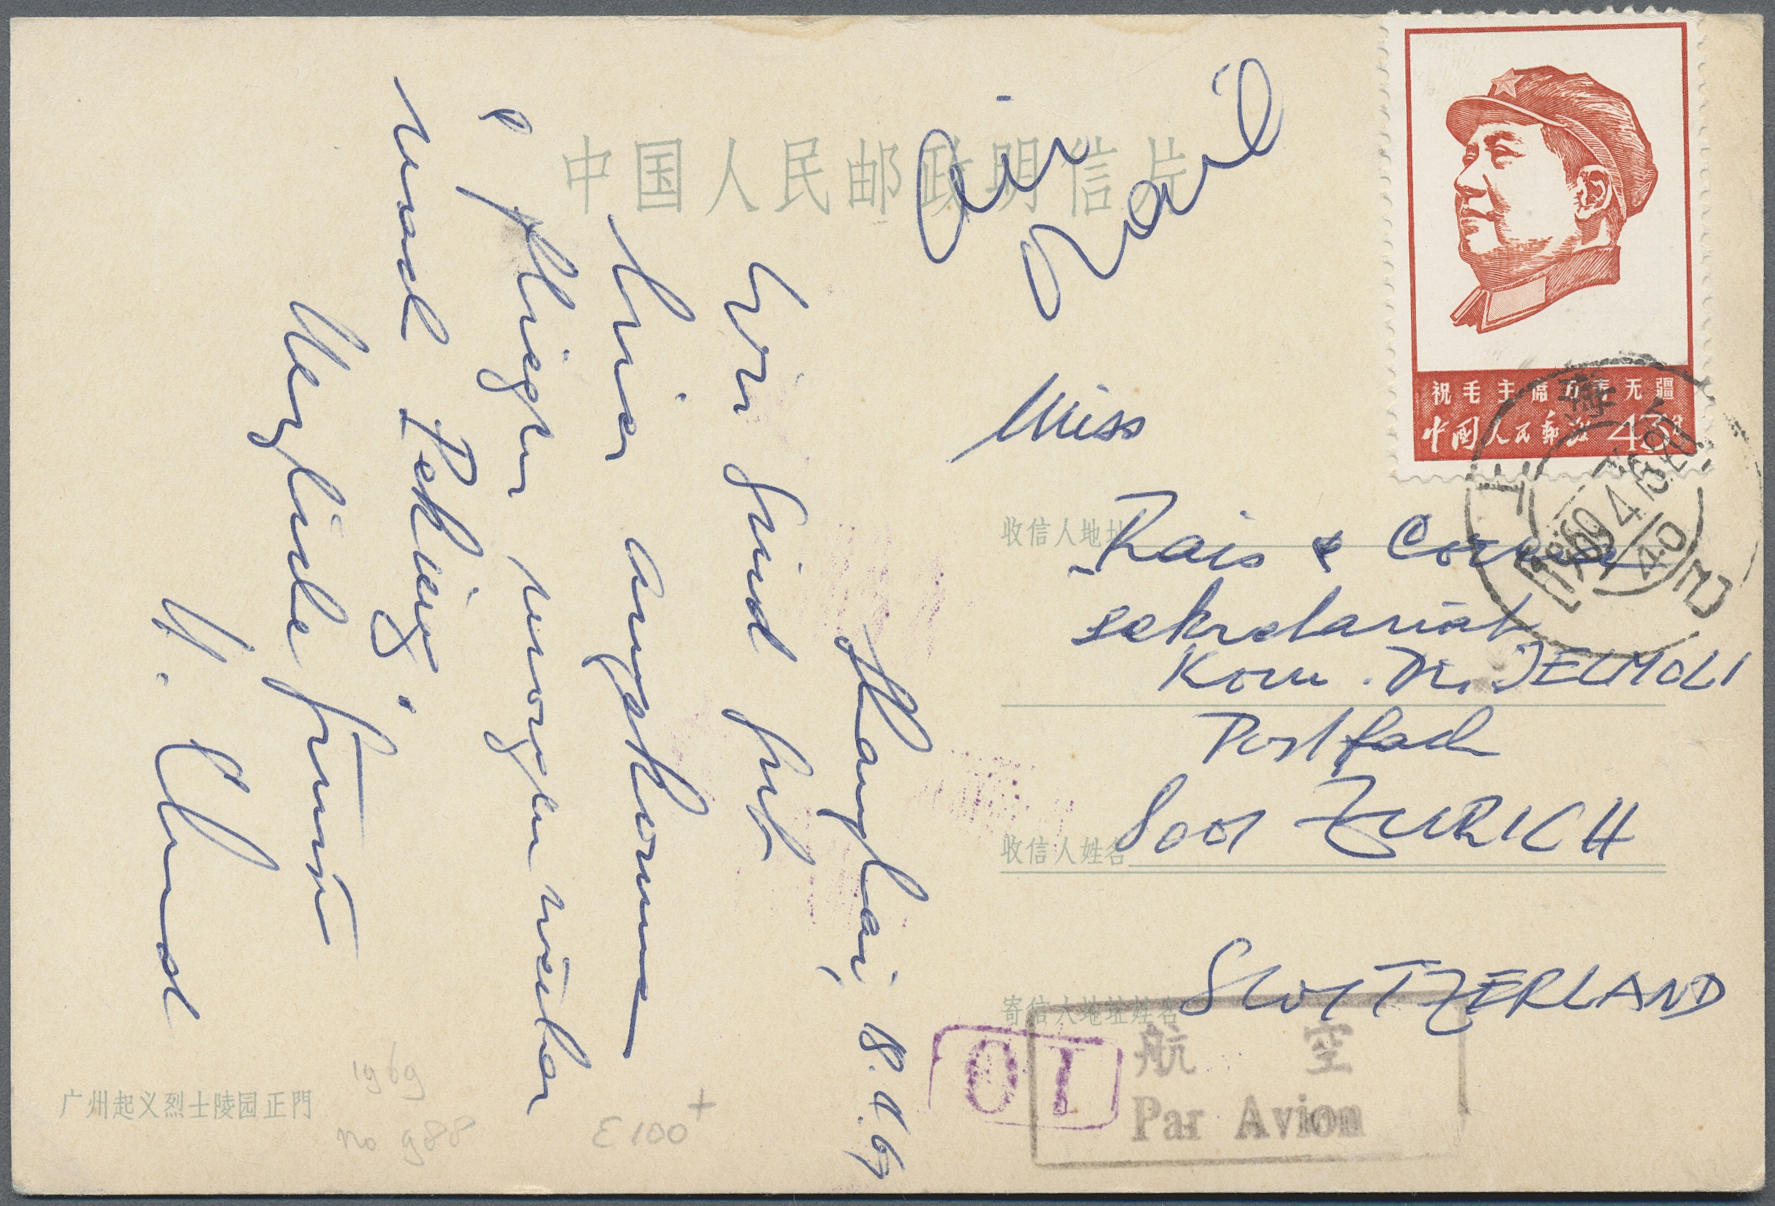 中国人民邮政明信片
air mail
祝毛主席万寿无疆
中国人民邮政 43分
上海
1969.4.
Shanghai, 18.4.69
Wir sind gut
hier angekommen
& fliegen morgen weiter
nach Peking.
Herzliche Grüsse
Miss
收信人地址
Rais &
sekretariat
Kom. JELMOLI
Postfach
收信人姓名
8001 ZURICH
SWITZERLAND
寄信人地址姓名
航空
Par Avion
01
广州起义烈士陵园正門
1969
no 988
€100+